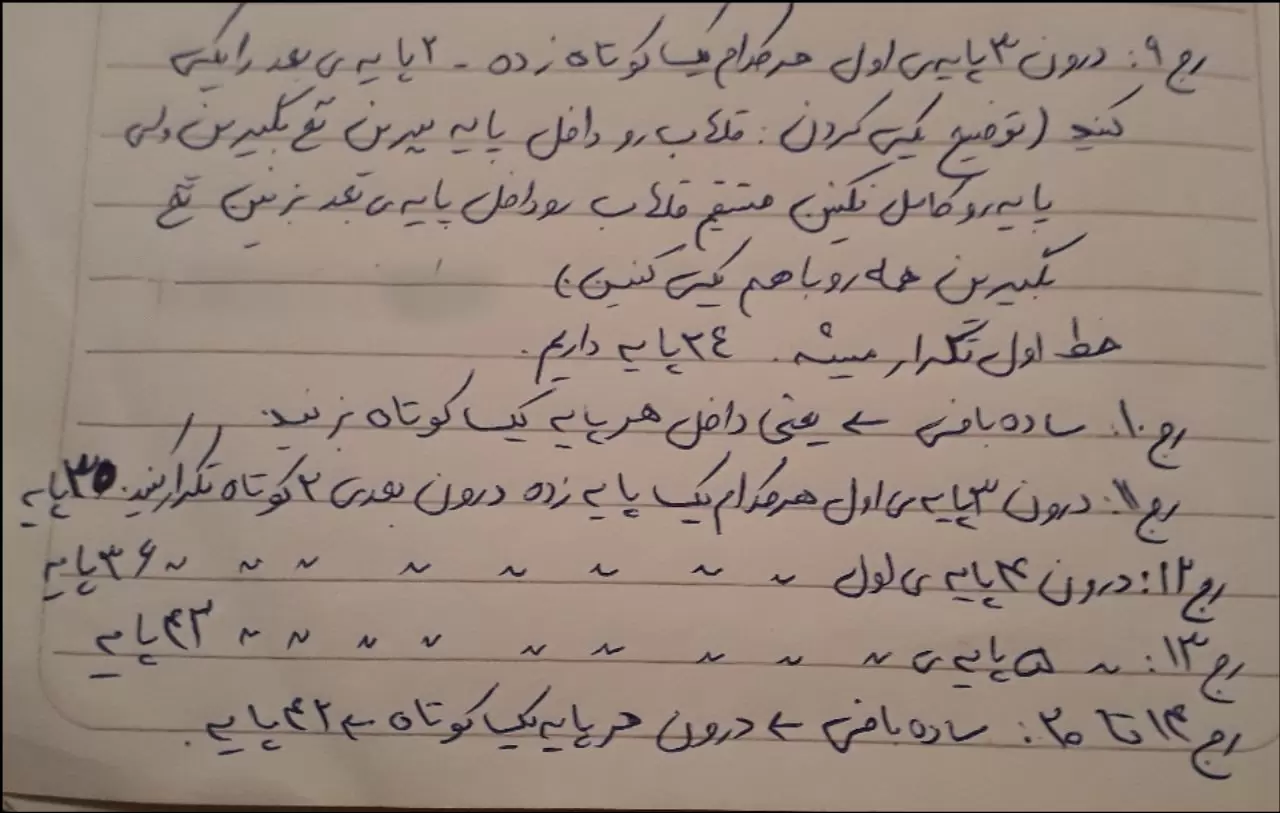 رج ۹: درون ۳ پایه ی اول هرکدام یک کوتاه زده - ۲ پایه ی بعد را یکی
کنید (توضیح یکی کردن: قلاب رو داخل پایه ببرین نخ بگیرین ولی
پایه رو کامل نکنین مستقیم قلاب رو داخل پایه ی بعد بزنین نخ
بگیرین همه رو با هم یکی کنین)
خط اول تکرار میشه. ۲٤ پایه داریم.
رج ۱۰: ساده بافی ← یعنی داخل هر پایه یک کوتاه بزنید.
رج ۱۱: درون ۳ پایه ی اول هرکدام یک پایه زده درون بعدی ۲ کوتاه تکرار کنید. ۳۰ پایه
رج ۱۲: درون ۴ پایه ی اول ~ ~ ~ ~ ~ ~ ~ ~ ۳۶ پایه
رج ۱۳: ~ ۵ پایه ی ~ ~ ~ ~ ~ ~ ~ ~ ~ ۴۲ پایه
رج ۱۴ تا ۲۰: ساده بافی ← درون هر پایه یک کوتاه ← ۴۲ پایه.